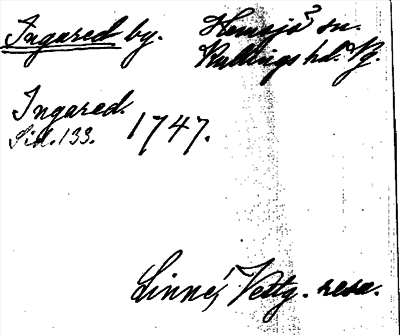 Ingared by. Hemsjö sn.
Kullings hd. Vg.
Ingared.
Sid. 133. 1747.
Linné, Vestg. resa.